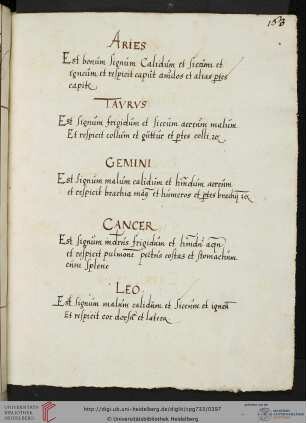 153
ARIES
Est bonum signum Calidum et siccum et
igneum et respicit caput et alias ptes
capite
TAVRVS
Est signum frigidum et siccum malum
Et respicit collum et guttur et ptes colli
GEMINI
Est signum malum calidum et aereum
et respicit brachia et humeros et ptes
CANCER
Est signum frigidum et
et respicit pectus costas et stomachum
Splene
LEO
Est signum malum calidum et siccum et
Et respicit cor et latera
UNIVERSITÄTS-
BIBLIOTHEK
HEIDELBERG
http://digi.ub.uni-heidelberg.de/diglit/cpg733/0397
© Universitätsbibliothek Heidelberg